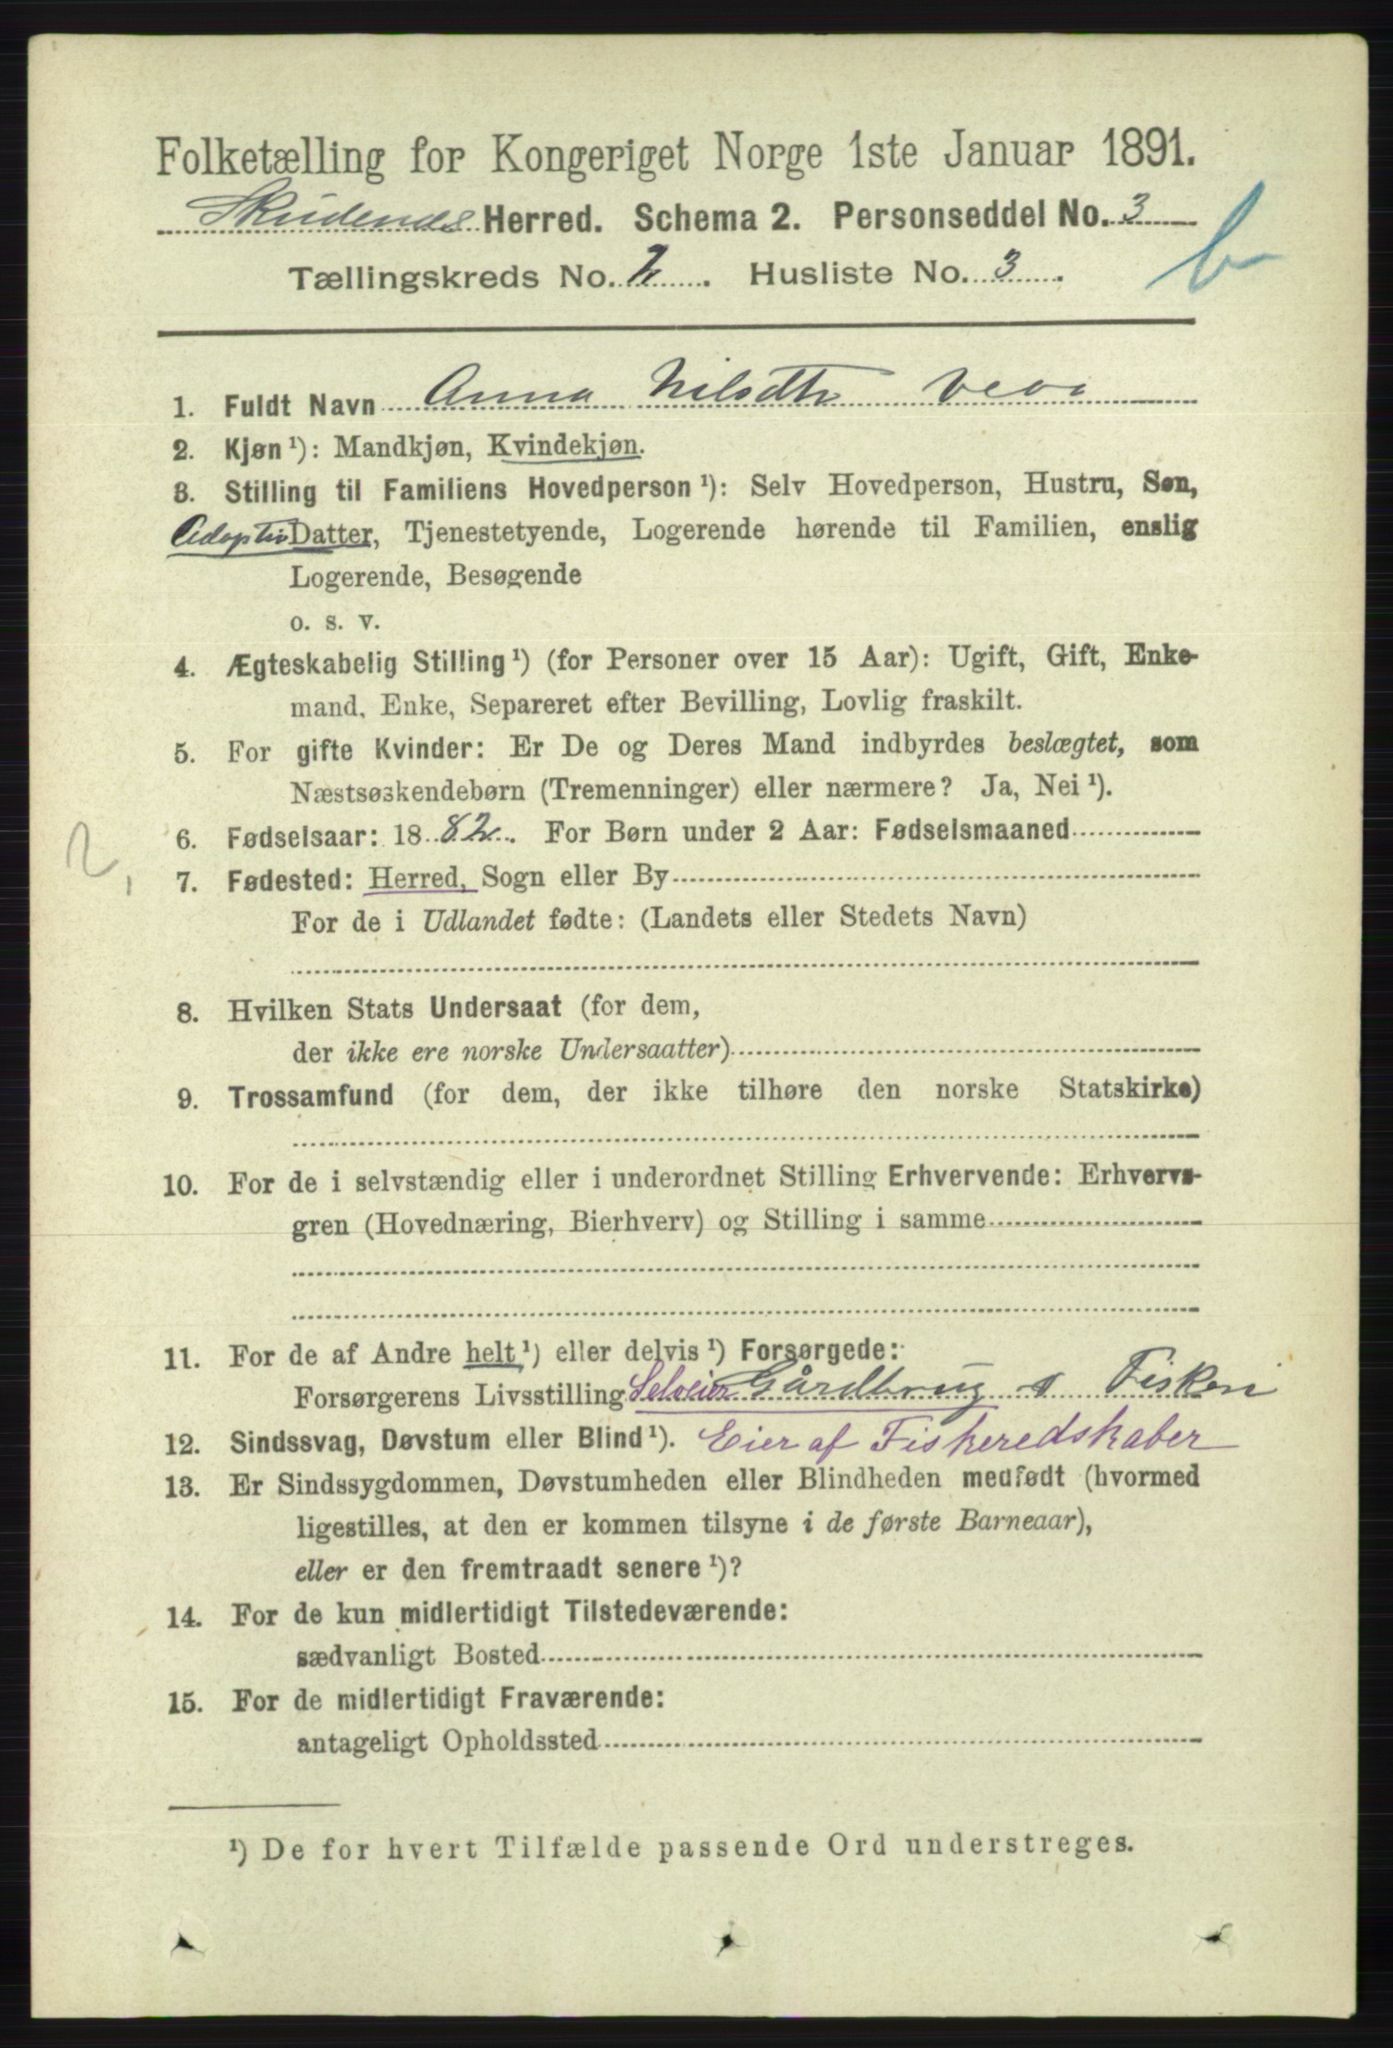 Folketælling for Kongeriget Norge 1ste Januar 1891.
Skudenes Herred. Schema 2. Personseddel No. 3
b
Tællingskreds No. 2. Husliste No. 3.
1. Fuldt Navn Anna Nilsdtr
2. Kjøn ¹): Mandkjøn, Kvindekjøn.
3. Stilling til Familiens Hovedperson ¹): Selv Hovedperson, Hustru, Søn,
Adoptiv Datter, Tjenestetyende, Logerende hørende til Familien, enslig
Logerende, Besøgende
o. s. v.
4. Ægteskabelig Stilling ¹) (for Personer over 15 Aar): Ugift, Gift, Enke-
mand, Enke, Separeret efter Bevilling, Lovlig fraskilt.
5. For gifte Kvinder: Er De og Deres Mand indbyrdes beslægtet, som
Næstsøskendebørn (Tremenninger) eller nærmere? Ja, Nei ¹).
6. Fødselsaar: 1882. For Børn under 2 Aar: Fødselsmaaned
2,
7. Fødested: Herred, Sogn eller By
For de i Udlandet fødte: (Landets eller Stedets Navn)
8. Hvilken Stats Undersaat (for dem,
der ikke ere norske Undersaatter)
9. Trossamfund (for dem, der ikke tilhøre den norske Statskirke)
10. For de i selvstændig eller i underordnet Stilling Erhvervende: Erhvervs-
gren (Hovednæring, Bierhverv) og Stilling i samme
11. For de af Andre helt ¹) eller delvis ¹) Forsørgede:
Forsørgerens Livsstilling Selveier Gårdbrug s Fiskeri
12. Sindssvag, Døvstum eller Blind ¹). Eier af Fiskeredskaber
13. Er Sindssygdommen, Døvstumheden eller Blindheden medfødt (hvormed
ligestilles, at den er kommen tilsyne i de første Barneaar),
eller er den fremtraadt senere ¹)?
14. For de kun midlertidigt Tilstedeværende:
sædvanligt Bosted
15. For de midlertidigt Fraværende:
antageligt Opholdssted
¹) De for hvert Tilfælde passende Ord understreges.